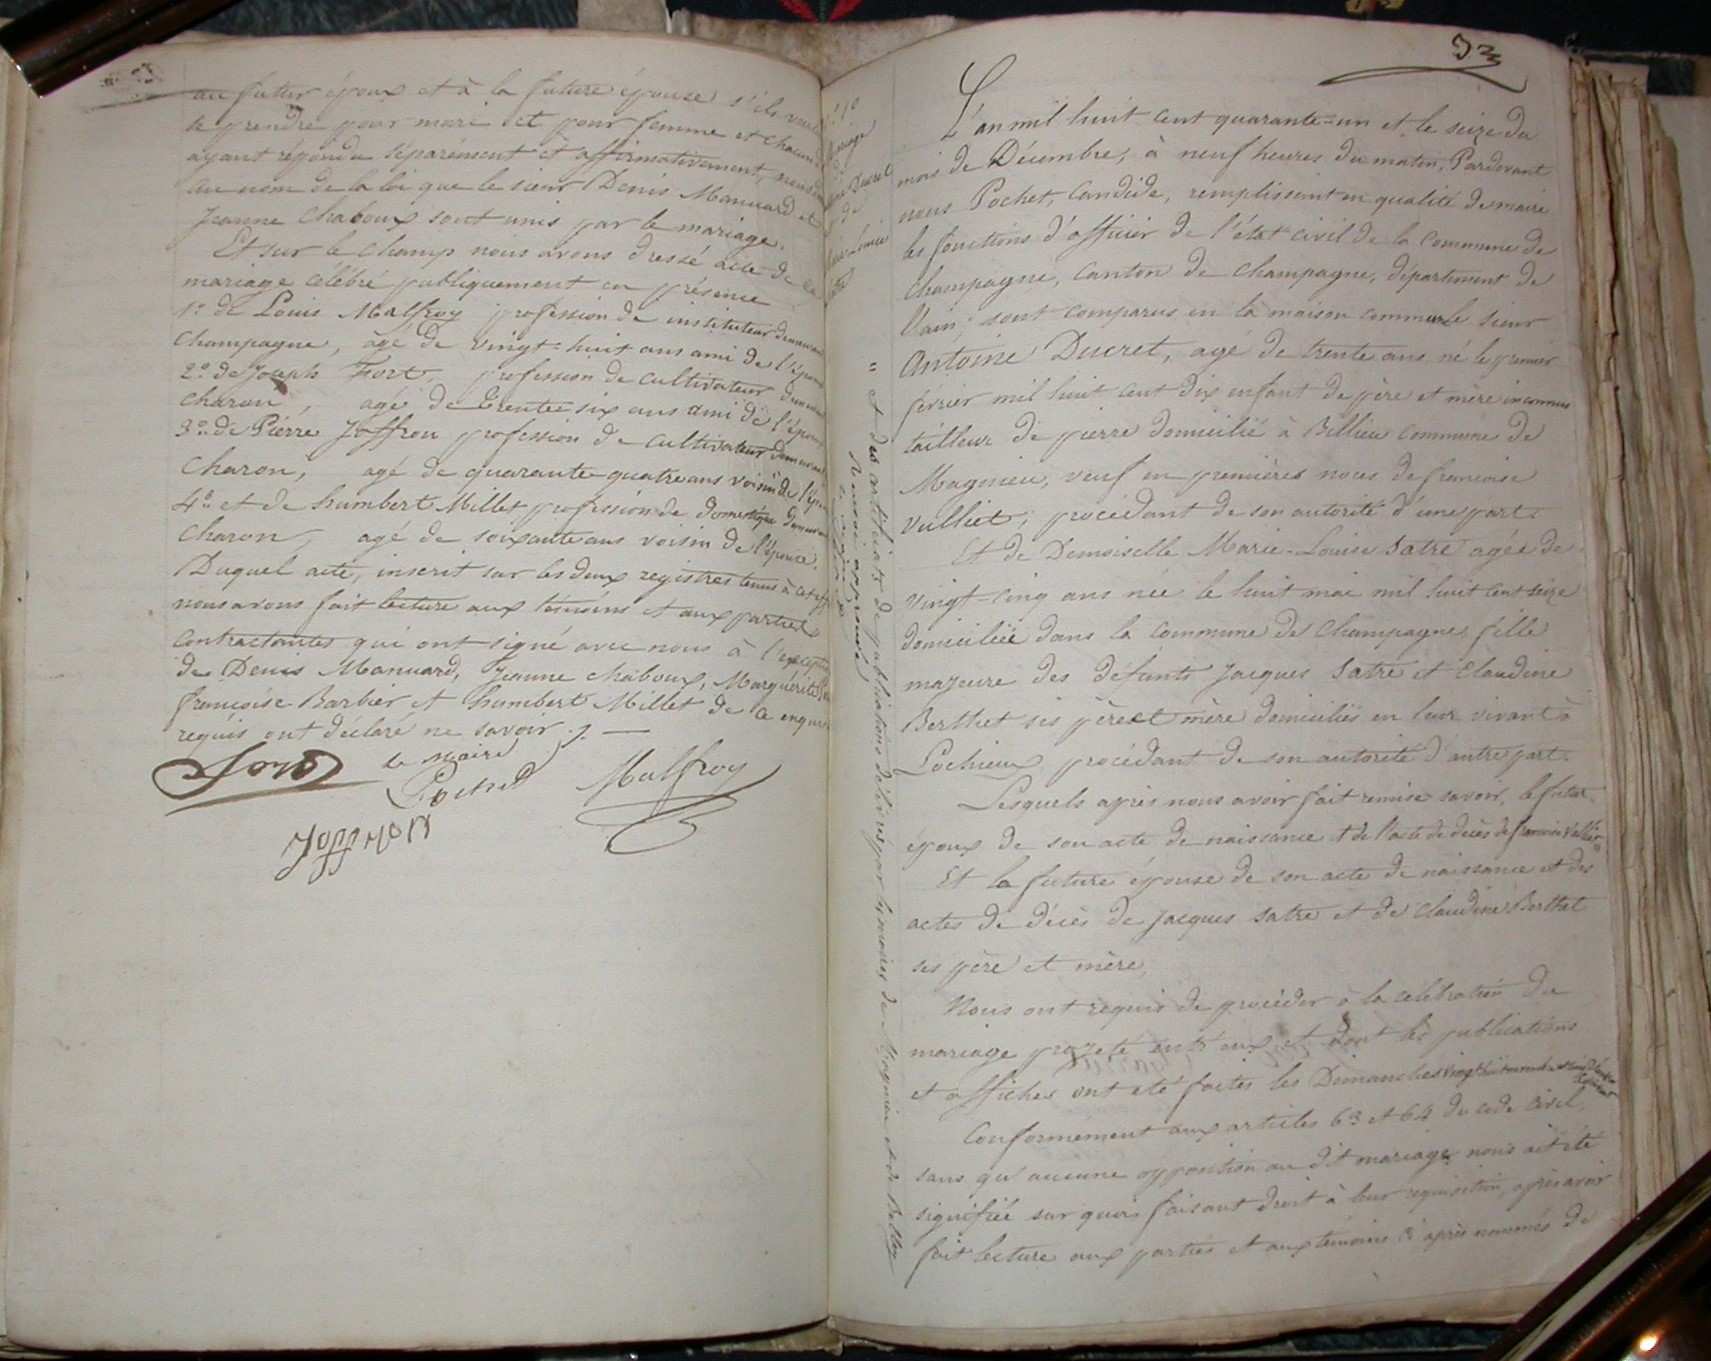 au futur époux et à la future épouse s'ils veulent
se prendre pour mari et pour femme et chacun
ayant répondu séparément et affirmativement, nous
au nom de la loi que le sieur Denis Manuard et
Jeanne Chaboux sont unis par le mariage.
Et sur le champ nous avons dressé acte de ce
mariage célébré publiquement en présence
1º de Louis Malfroy profession de instituteur demeurant
Champagne, agé de vingt-huit ans ami de l'époux
2º de Joseph Fort, profession de cultivateur demeurant
Charon, agé de trente six ans ami de l'époux
3º de Pierre Joffron profession de cultivateur demeurant
Charon, agé de quarante-quatre ans voisin de l'époux
4º et de humbert Millet profession de domestique demeurant
Charon, agé de soixante ans voisin de l'épouse.
Duquel acte, inscrit sur les deux registres tenus à cet effet
nous avons fait lecture aux témoins et aux parties
contractantes qui ont signé avec nous à l'exception
de Denis Manuard, Jeanne Chaboux, Marguerite
françoise Barbier et humbert Millet de ce enquis
requis ont déclaré ne savoir ./.
le Maire
Fort Pochet Malfroy
Joffron
Mariage
Ducret
de
Marie-Louise
Satre
= et des certificats de publications délivrés par les maires de Magnieu et de Belley
Renvoi approuvé
32
L'an mil huit cent quarante-un et le seize du
mois de Décembre, à neuf heures du matin, Pardevant
nous Pochet, Candide, remplissant en qualité de maire
les fonctions d'officier de l'état civil de la commune de
Champagne, Canton de Champagne, département de
l'ain; sont comparus en la maison commune le sieur
Antoine Ducret, agé de trente ans né le premier
février mil huit cent dix enfant de père et mère inconnus
tailleur de pierre domicilié à Billieu commune de
Magnieu, veuf en premières noces de francoise
Vulliet, procédant de son autorité d'une part.
Et de Demoiselle Marie-Louise Satre agée de
vingt-cinq ans née le huit mai mil huit cent seize
domiciliée dans la commune de Champagne, fille
majeure des défunts Jacques Satre et Claudine
Berthet ses père et mère domiciliés en leur vivant à
Lochieux procédant de son autorité d'autre part.
Lesquels après nous avoir fait remise savoir, le futur
époux de son acte de naissance et de l'acte de décès de francoise Vulliet =
Et la future épouse de son acte de naissance et des
actes de décès de Jacques Satre et de Claudine Berthet
ses père et mère,
Nous ont requis de procéder à la celebration du
mariage projeté entr'eux et dont les publications
et affiches ont été faites les Dimanches vingt huit novembre et cinq Décembre
Conformément aux articles 63 et 64 du code civil,
sans qu'aucune opposition au dit mariage nous ait été
signifiée sur quoi faisant droit à leur requisition, après avoir
fait lecture aux parties et aux témoins ci après nommés de